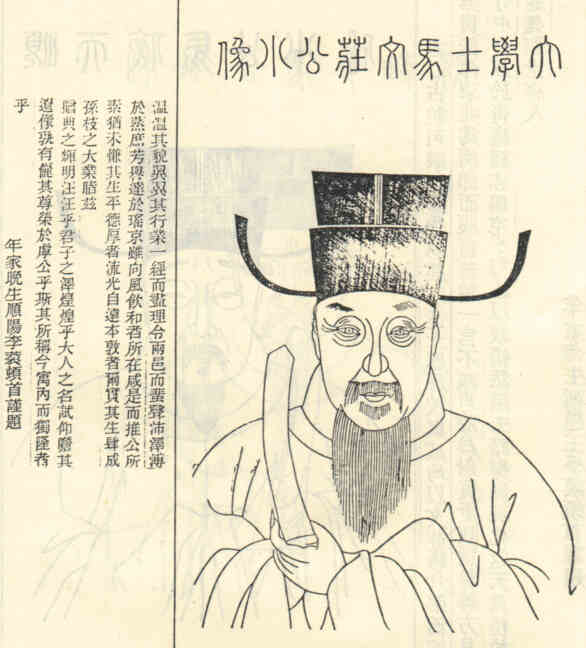 大學士馬文莊公小像
溫溫其貌翼翼其行業一經而盡理令兩邑而蜚聲沛澤溥
於烝庶芳譽達於瑤京雖向風飲和者所在咸是而推公所
素猶未慊其生平德厚者流光自遠本敦者爾實其生肆成
孫枝之大業賸茲
贈典之輝明汪汪乎君子之澤煌煌乎大人之名試仰瞻其
遺像有儼其尊榮於虖公乎斯其所稱今寓內而獨隆者
乎
年家晚生順陽李蓘頓首謹題